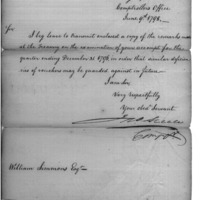 Comptrollers Office
June 9th 1798.
Sir
I beg leave to transmit enclosed a copy of the remarks made
at the Treasury on the examination of your account for the
quarter ending December 31 1796 in order that similar deficien-
cies of vouchers may be guarded against in future.
I am Sir,
Very respectfully
Your obdt Servant
Jno Steele
Compt
William Simmons Esqr